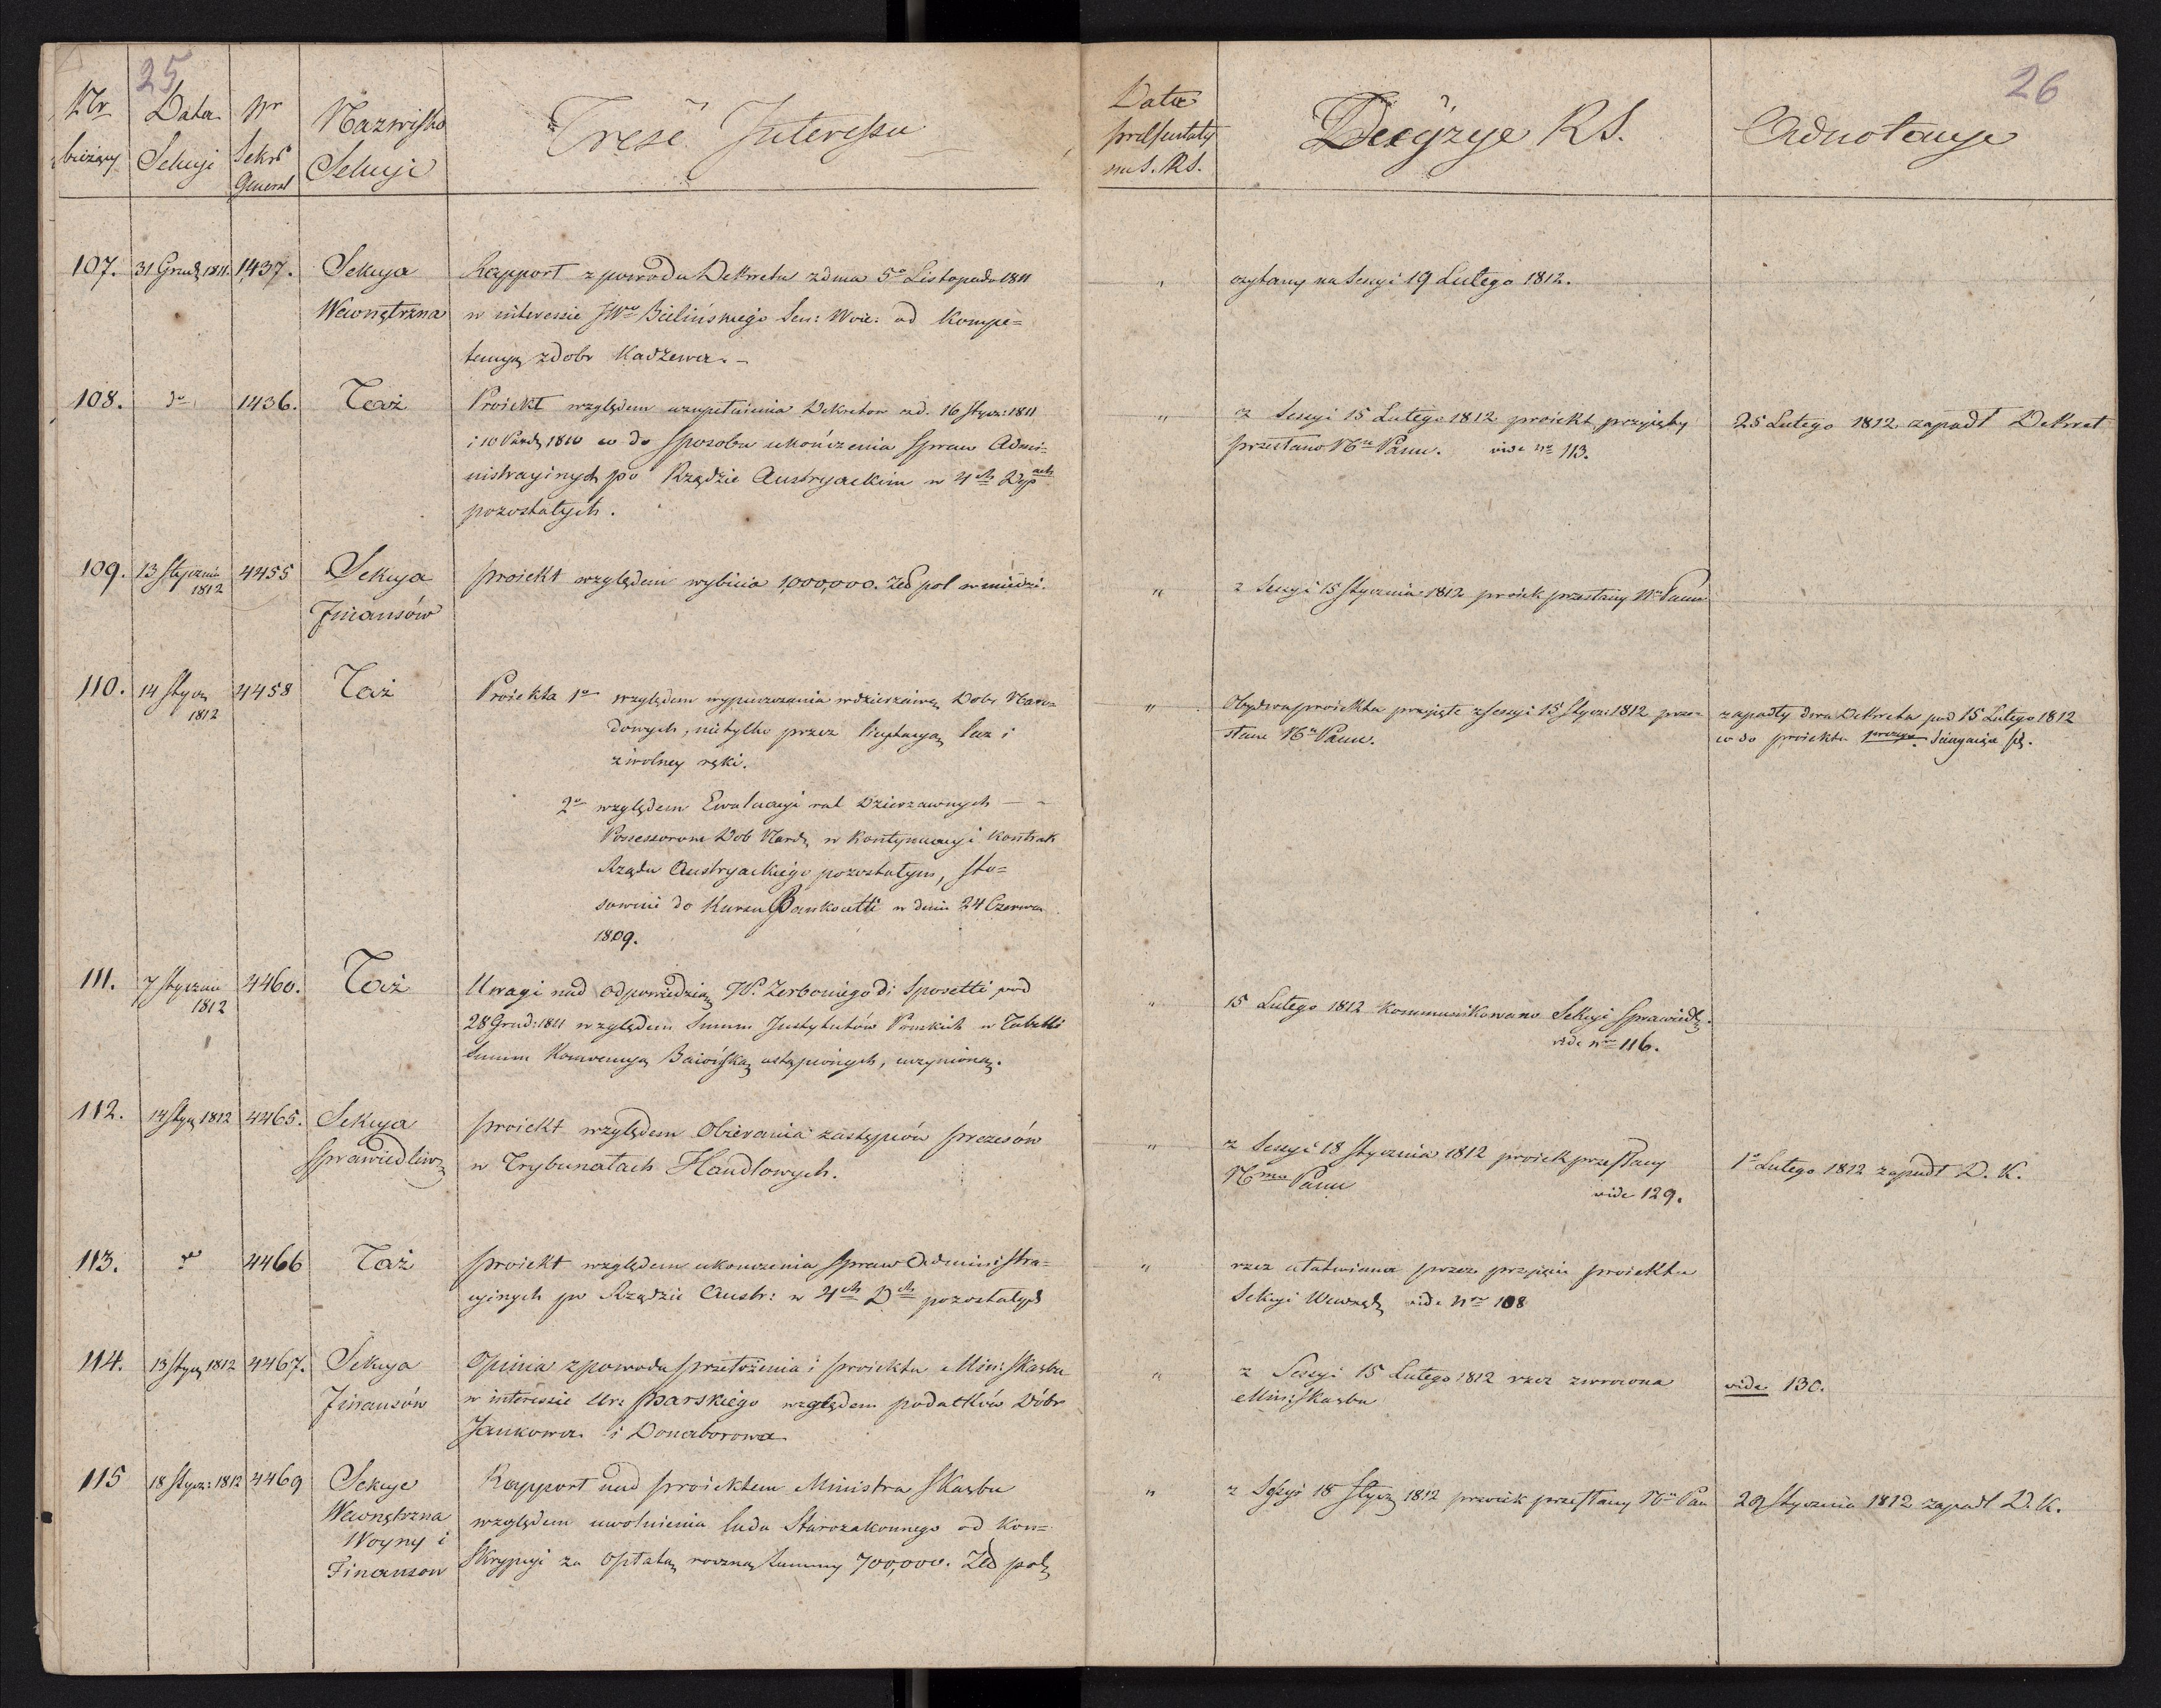 25
26
Nr bieżący
Data Sekcji
Nr Sekrᵃ General
Nazwisko Sekcji
Treść Interessu
Data presentaty na S. RS.
Decyzye RS.
Adnotacye
107. 31 Grud. 1811. 1437. Sekcya Wewnętrzna
Rapport z powodu Dekretu z dnia 5º Listopada 1811
w interessie JWᵒ Bielińskiego Sen: Woie: od kompe=
tencyą z dobr Kadzewa. –
" czytany na Sessyi 19 Lutego 1812.
108. dº 1436. Taż
Proiekt względem uzupełnienia Dekretow z d. 16 Stycz: 1811
i 10 Paźdz 1810 co do sposobu ukończenia spraw Admi=
nistracyinych po Rządzie Austryackim w 4ch Depᵃᶜʰ
pozostałych.
" z Sessyi 15 Lutego 1812 proiekt przyięty
przesłano Nᵘ Panu. vide nº 113.
25 Lutego 1812 zapadł Dekret
109. 13 Stycznia 1812 4455 Sekcya Finansów
proiekt względem wybicia 1,000,000. Złł pol w miedzi.
" z Sessyi 15 Stycznia 1812 proiek przesłany Nᵘ Panu
110. 14 Stycz 1812 4458 Taż
Proiekta 1º względem wypuszczania w dzierzawę Dobr Naro=
dowych, nietylko przez licytacyą lecz i
z wolney ręki.
2º względem Ewaluacyi rat Dzierzawnych – –
Possessorom Dob Nard. w kontynuacyi kontrak
Rządu Austryackiego pozostałym, sto=
sownie do kursu Bankocetli w dniu 24 Czerwca
1809.
" Obydwa proiekta przyięte z Sessyi 15 Stycz: 1812 prze=
słane Nᵘ Panu.
zapadły dwa Dekreta pod 15 Lutego 1812
co do proiektu ściągaiąca się.
111. 7 Stycznia 1812 4460. Taż
Uwagi nad odpowiedzią W. Zerboniego di Sposetti pod
28 Grud: 1811 względem Summ Instytutów Pruskich w Tabelli
Summ Konwencyą Baiońską ustąpionych, uczynioną.
" 15 Lutego 1812 kommunikowano Sekcyi Sprawiedl.
vide nº 116.
112. 14 Stycz 1812 4465. Sekcya Sprawiedliw.
proiekt względem Obierania zastępców prezesów
w Trybunałach Handlowych.
" z Sessyi 18 Stycznia 1812 proiek przesłany
Nᵐᵘ Panu vide 129.
1º Lutego 1812 zapadł D. K.
113. dº 4466 Taż
proiekt względem ukonczenia Spraw Administra=
cyinych po Rządzie Austr: w 4ch Dch pozostałych
" rzecz ułatwiona przez przyięcie proiektu
Sekcyi Wewnętz vide Nrº 108
114. 13 Stycz 1812 4467. Sekcya Finansów
Opinia z powodu przełożenia i proiektu Min: Skarbu
w interessie Ur: Psarskiego względem podatków Dóbr
Jankowa i Donaborowa
" z Sessyi 15 Lutego 1812 rzecz zwrocona
Min: Skarbu
vide 130.
115 18 Stycz: 1812 4469 Sekcye Wewnętrzna Woyny i Finansow
Rapport nad proiektem Ministra Skarbu
względem uwolnienia ludu Starozakonnego od Kon=
skrypcyi za opłatą roczną summy 700,000. Złł pol.
" z Sessyi 18 Stycz 1812 proiek przesłany Nᵘ Pan
29 Stycznia 1812 zapadł D. K.